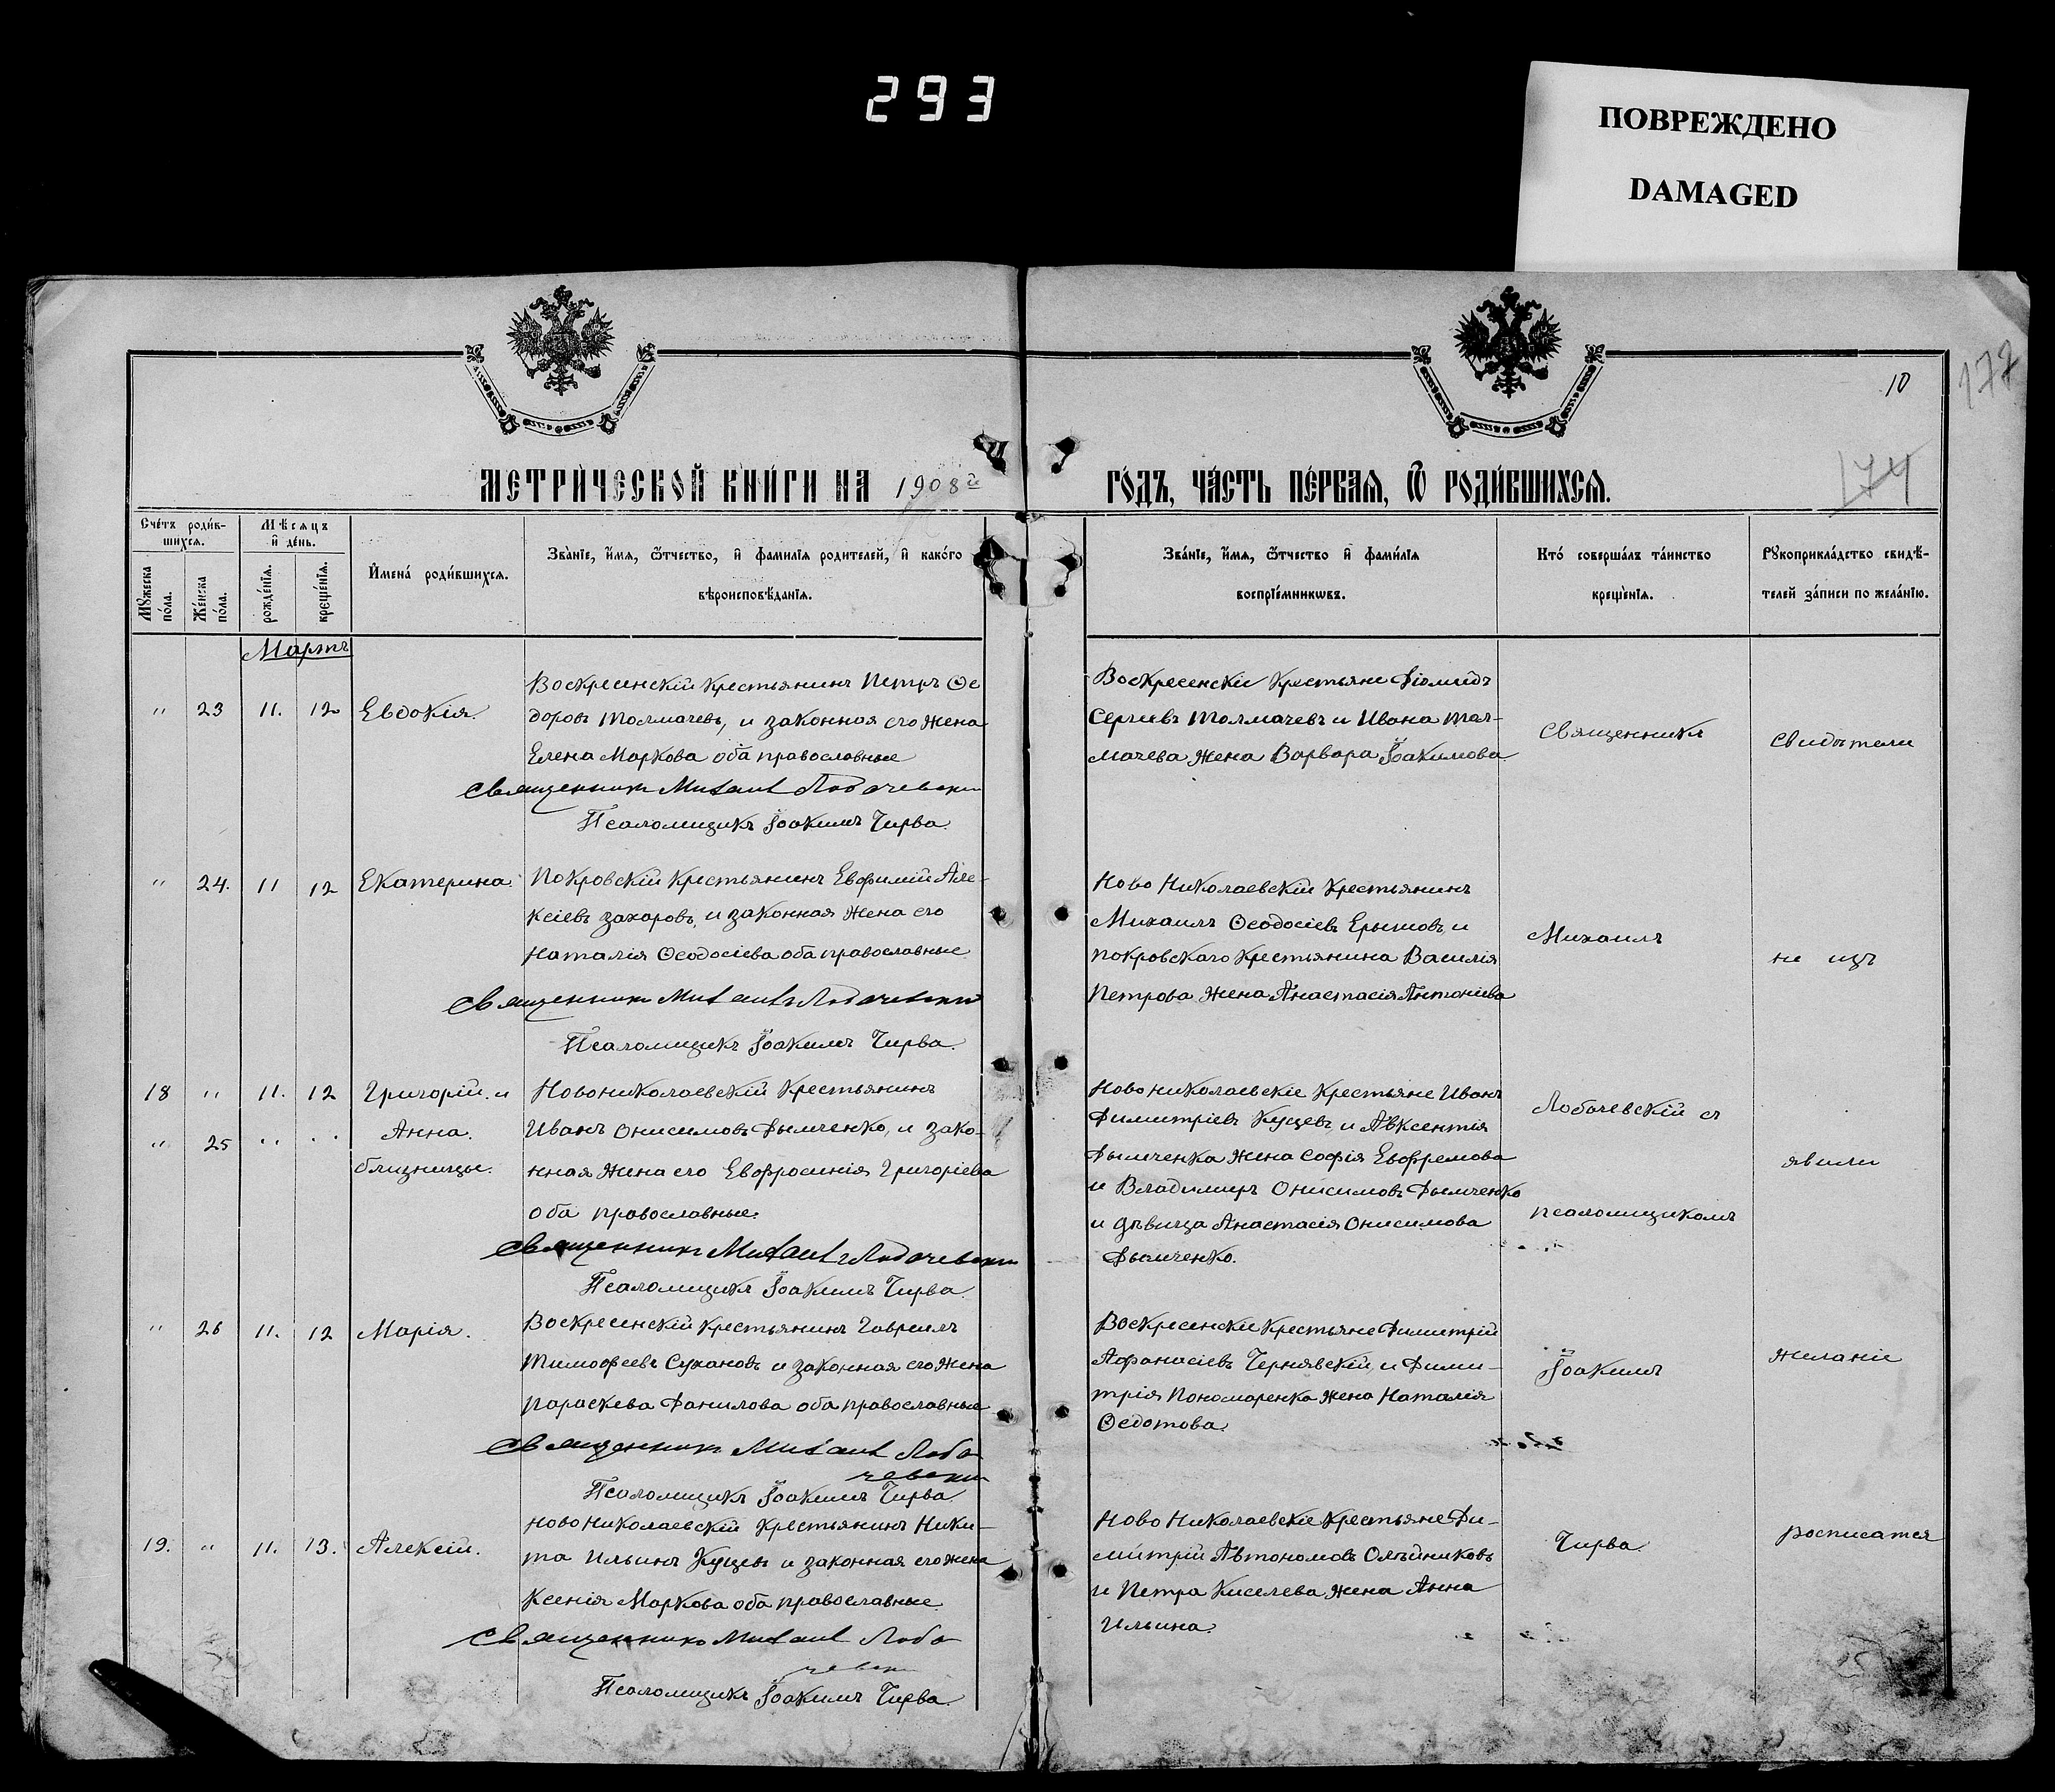 293
ПОВРЕЖДЕНО
DAMAGED
177
10
174
МЕТРИ́ЧЕСКОЙ КНИ́ГИ НА 1908й
ГО́ДЪ, ЧА́СТЬ ПЕ́РВАЯ, Ѿ РОДИ́ВШИХСЯ.
Сче́тъ роди́в-
шихся.
Мѣ́сяцъ
и҆ де́нь.
Мꙋ́жеска по́ла.
Же́нска по́ла.
рожде́нїѧ.
креще́нїѧ.
И҆мена́ роди́вшихсѧ.
Зва́нїе, и҆́мѧ, ѻ҆́тчество, и҆ фами́лїѧ роди́телей, и҆ како́гѡ
вѣроисповѣ́данїѧ.
Зва́нїе, и҆́мѧ, ѻ҆́тчество и҆ фами́лїѧ
воспрїе́мникѡвъ.
Кто́ соверша́лъ та́инство
креще́нїѧ.
Рꙋкоприкла́дство свидѣ́-
телей за́писи по жела́нїю.
Мартъ
" 23 11. 12 Евдокія.
Воскресенскій крестьянинъ Петръ Ѳе
доровъ Толмачевъ, и законная его жена
Елена Маркова оба православные
Священникъ Михаилъ Лобачевскій
Псаломщикъ Іоакимъ Чирва.
Воскресенскіе крестьяне Діомидъ
Сергіевъ Толмачевъ и Ивана Тол-
мачева жена Варвара Іоакимова
" 24. 11 12 Екатерина.
Покровскій крестьянинъ Евфимій Але-
ксіевъ Захаровъ, и законная жена его
Наталія Ѳеодосіева оба православные
Священникъ Михаилъ Лобачевскій
Псаломщикъ Іоакимъ Чирва.
Ново Николаевскій крестьянинъ
Михаилъ Ѳеодосіевъ Ерышовъ, и
Покровскаго крестьянина Василія
Петрова жена Анастасія Антоніева
18 " 11. 12 Григорій. и
" 25 " " Анна.
близницы.
Новониколаевскій крестьянинъ
Иванъ Онисимовъ Дымченко, и зако-
нная жена его Евфросинія Григоріева
оба православные.
Священникъ Михаилъ Лобачевскій
Псаломщикъ Іоакимъ Чирва.
Ново Николаевскіе крестьяне Иванъ
Димитріевъ Куцевъ, и Авксентія
Дымченка жена Софія Евфремова
и Владимиръ Онисимовъ Дымченко
и дѣвица Анастасія Онисимова
Дымченко.
" 26 11. 12 Марія.
Воскресенскій крестьянинъ Гавріилъ
Тимофеевъ Сухановъ и законная его жена
Параскева Данилова оба православные
Священникъ Михаилъ Лоба
чевскій
Псаломщикъ Іоакимъ Чирва.
Воскресенскіе крестьяне Димитрій
Афанасіевъ Чернявскій, и Дими-
трія Пономаренка жена Наталія
Ѳедотова.
19. " 11. 13. Алексій.
Ново Николаевскій крестьянинъ Ники-
та Ильинъ Куцевъ и законная его жена
Ксенія Маркова оба православные.
Священникъ Михаилъ Лоба
чевскій
Псаломщикъ Іоакимъ Чирва.
Ново Николаевскіе крестьяне Ди-
митрій Автономовъ Олѣйниковъ
и Петра Киселева жена Анна
Ильина.
Священникъ
Михаилъ
Лобачевскій съ
псаломщикомъ
Іоакимъ
Чирва.
Свидѣтели
не изъ
явили
желаніе
росписатся